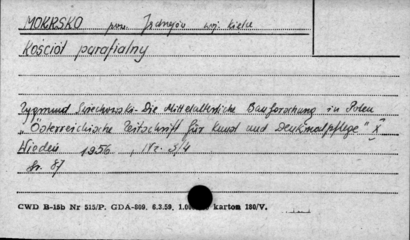 MOKRSKO pow. Jędrzejów woj. kielec
Kościół parafialny
Zygmund Świechowski - Die Mittelalterliche Bauforschung in Polen
„Österreichische Zeitschrift für Kunst und Denkmalpflege" X
Wieden 1956, Nr. 3/4
str. 87
CWD B-15b Nr 515/P. GDA-809, 6.3.59, 1.00 karton 180/V.